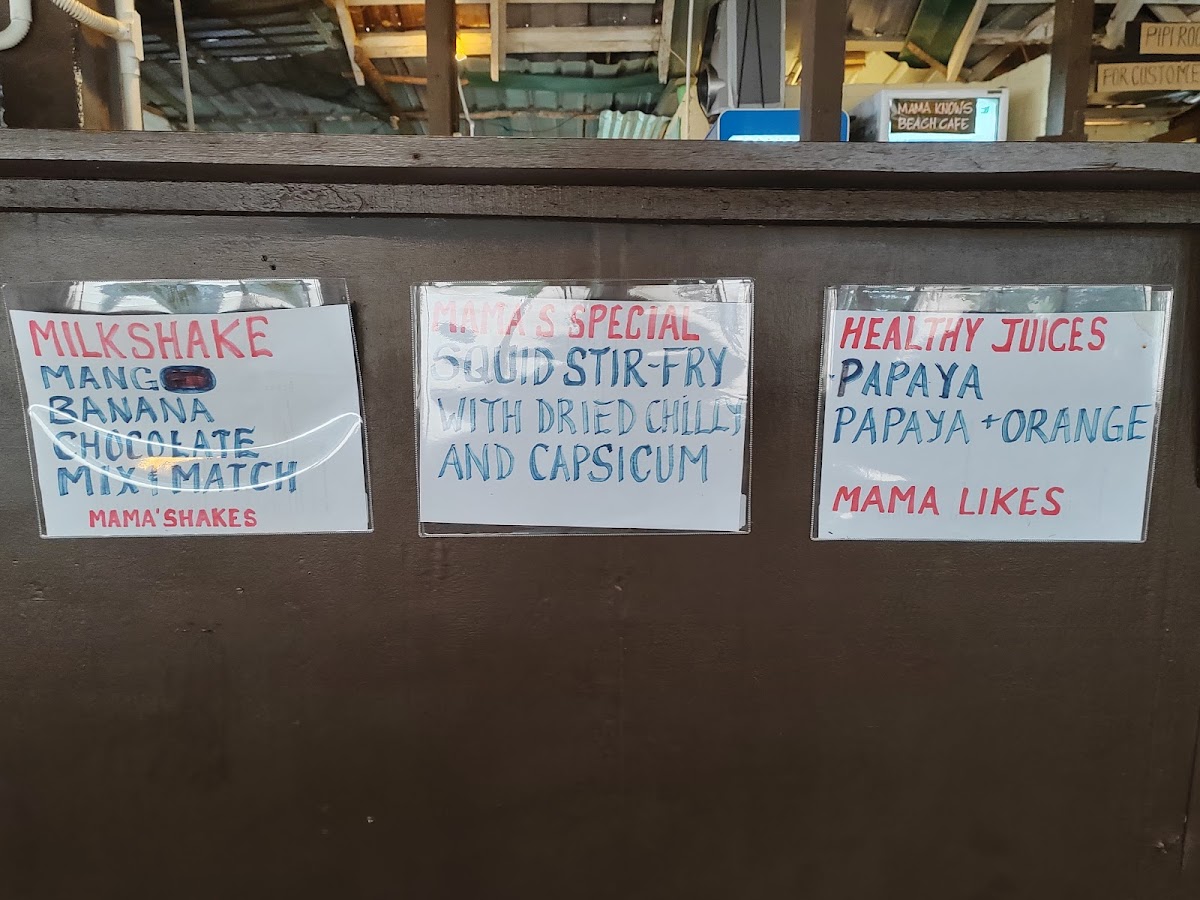 PIPI
FOR CUSTOME
MAMA KNOWS
BEACH CAFE
MILKSHAKE
MANGO
BANANA
CHOCOLATE
MIX & MATCH
MAMA'SHAKES
MAMA'S SPECIAL
SQUID STIR-FRY
WITH DRIED CHILLY
AND CAPSICUM
HEALTHY JUICES
PAPAYA
PAPAYA + ORANGE
MAMA LIKES